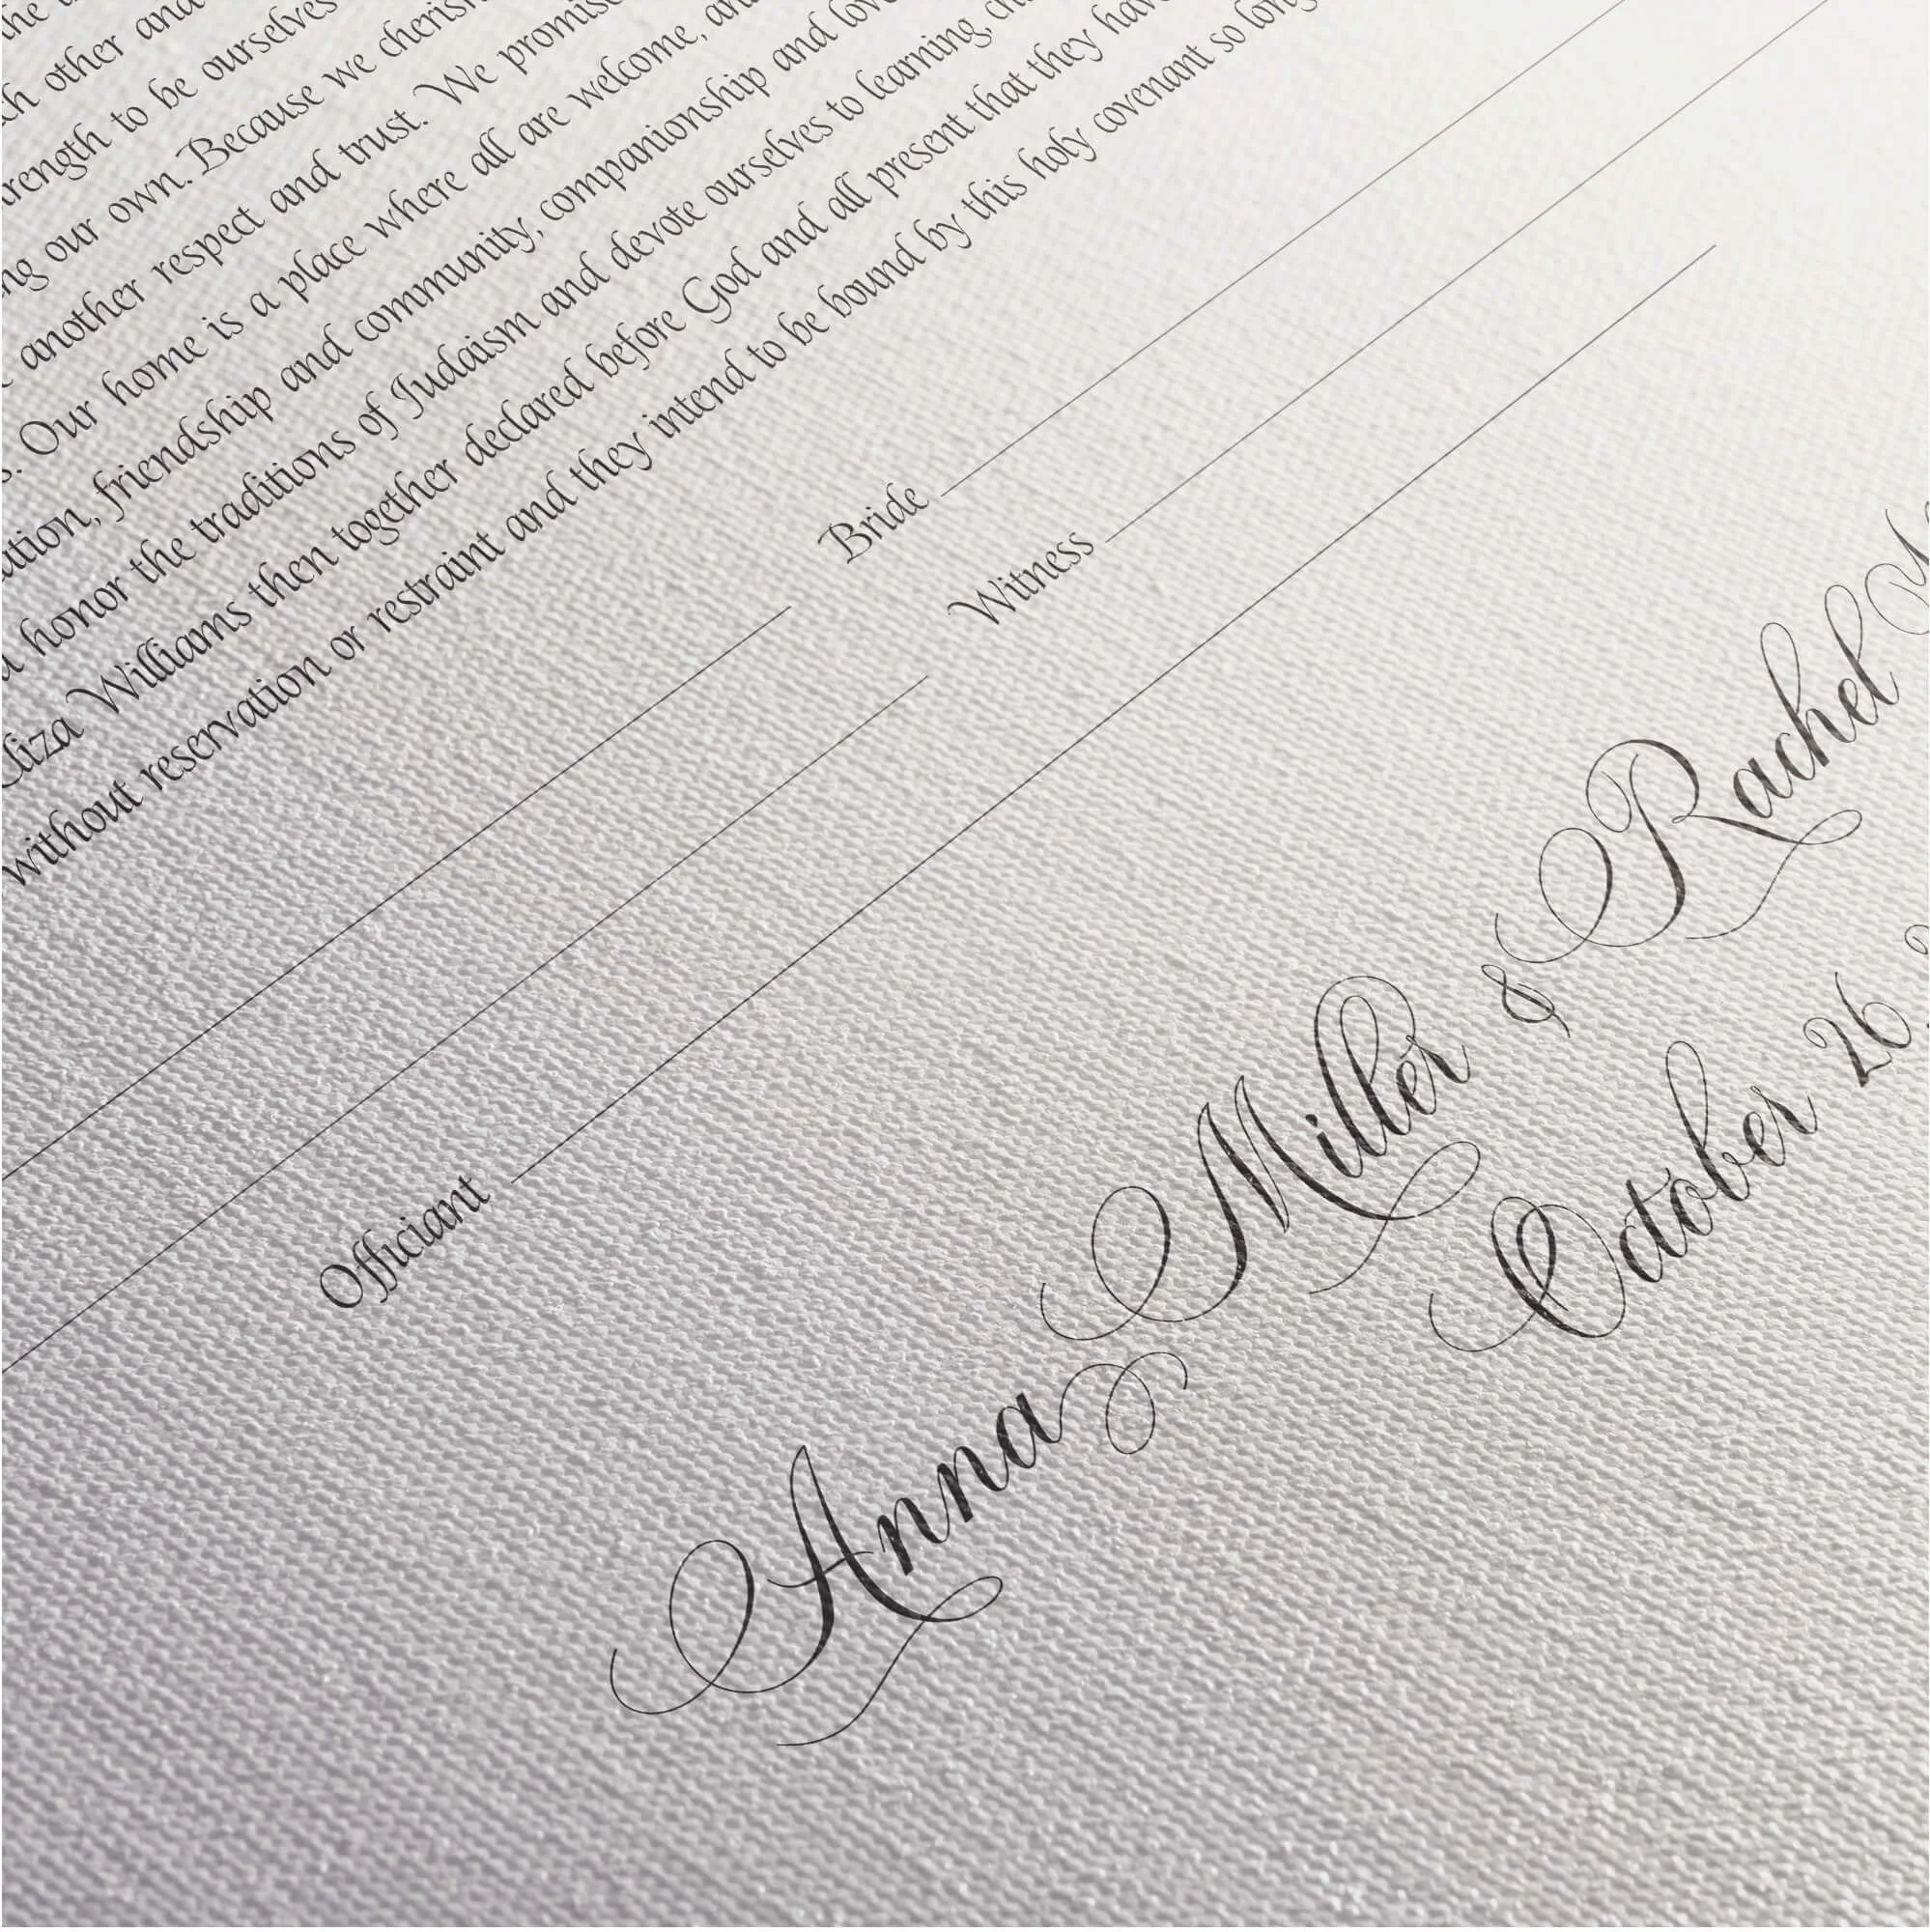 the
other and
strength to be ourselves
our own. Because we cherish
another respect and trust. We promise
Our home is a place where all are welcome, and
friendship and community, companionship and love
honor the traditions of Judaism and devote ourselves to learning,
Eliza Williams then together declared before God and all present that they have
without reservation or restraint and they intend to be bound by this holy covenant so long
Bride
Witness
Officiant
Anna Miller & Rachel
October 26